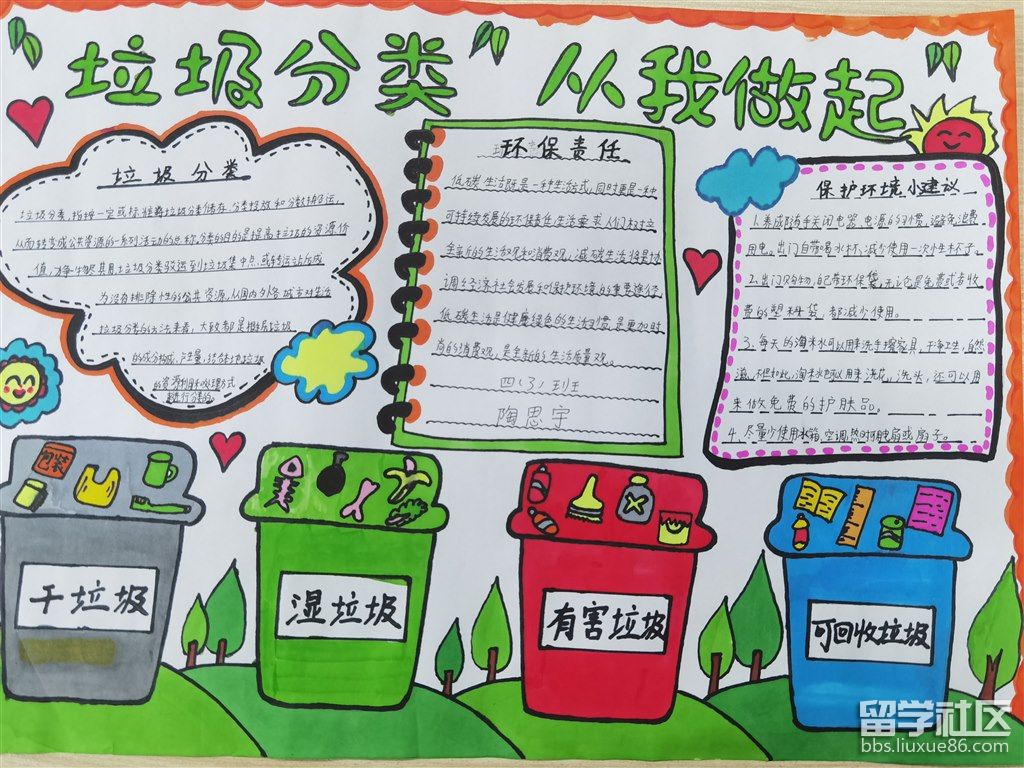 垃圾分类 从我做起
垃圾分类
垃圾分类,指按一定或标准将垃圾分类储存、分类投放和分类搬运,
从而转变成公共资源的一系列活动的总称,分类的目的是提高垃圾的资源价
值,
为没有排除性的公共资源,从国内外各城市对生活
垃圾分类的方法来看,大致都是根据垃圾
的成分构成、产生量,结合本地垃圾
的资源利用和处理方式
来进行分类的。
环保责任
低碳生活既是一种生活方式,同时更是一种
可持续发展的环保责任,生活要求人们树立
全新的生活观和消费观,减碳生活将是协
调经济社会发展和保护环境的重要途径,
低碳生活是健康绿色的生活习惯,是更加时
尚的消费观,是全新的生活质量观。
四(3)班
陶思宇
保护环境小建议
1.养成随手关闭电器、电源的习惯,避免浪费
用电。出门自带喝水杯,减少使用一次性杯子。
2.出门购物,自己带环保袋,无论是免费或者收
费的塑料袋,都减少使用。
3、每天的淘米水可以用来洗手擦家具,干净卫生,自然
滋 不但如此,淘米水也可以用来浇花、洗头,还可以用
来做免费的护肤品。
4、尽量少使用冰箱,空调,热时可用电扇或扇子。
包装
干垃圾
湿垃圾
有害垃圾
可回收垃圾
留学社区
bbs.liuxue86.com